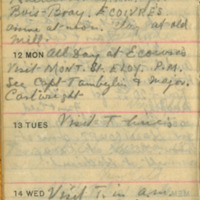 Bois-Bray. ECOIVRES
arrive at noon. Stay at old
mill.
12 MON All day at Ecoivres
Visit MONT. St. ELOY. P.M.
See Capt Tamblyn & Major.
Cartwright
13 TUES Visit T lines
14 WED Visit T. in a.m.